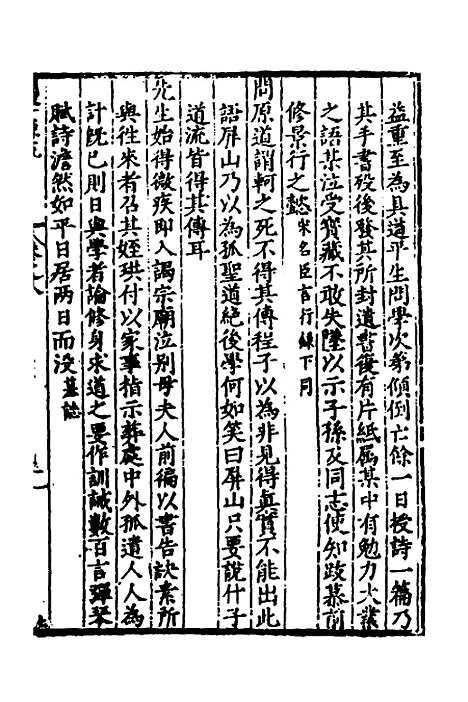 益重至為具道平生問學次第傾倒亡餘一日授詩一篇乃
其手書歿後發其所封遺書復有片紙屬某中有勉力大業
之語某泣受寶藏不敢失墜以示子孫及同志使知跂慕前
修景行之懿宋名臣言行錄下同
問原道謂軻之死不得其傳程子以為非見得真實不能出此
語屏山乃以為孤聖道絕後學何如笑曰屏山只要說什子
道流皆得其傳耳
先生始得微疾即入謁宗廟泣別母夫人前徧以書告訣素所
與往來者召其姪珙付以家事指示葬處中外孤遺人人為
計既已則日與學者論修身求道之要作訓誡數百言彈琴
賦詩澹然如平日居兩日而沒墓誌